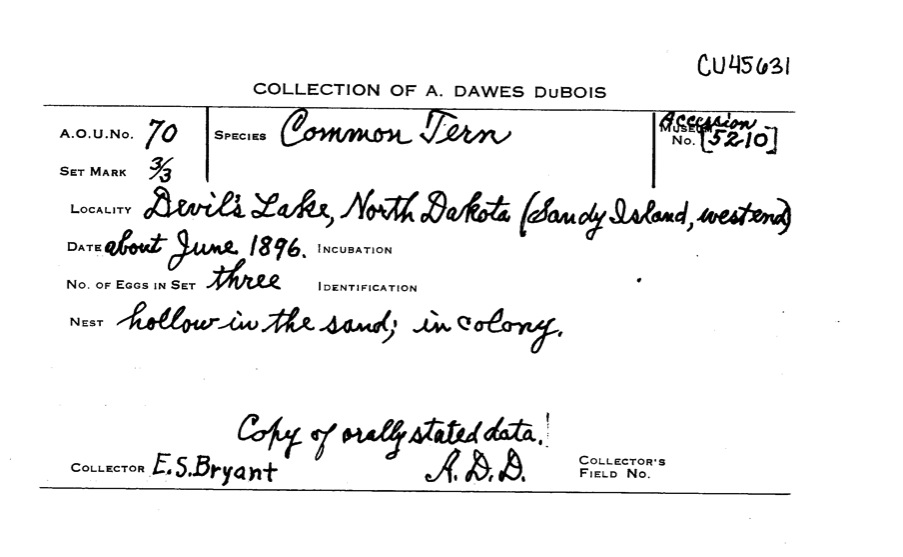 CU45631
COLLECTION OF A. DAWES DUBOIS
A.O.U.No. 70 SPECIES Common Tern Accession MUSEUM No. [5210]
SET MARK 3/3
LOCALITY Devil's Lake, North Dakota (Sandy Island, west end)
DATE about June 1896. INCUBATION
NO. OF EGGS IN SET three IDENTIFICATION
NEST hollow in the sand; in colony.
Copy of orally stated data.
COLLECTOR E.S. Bryant A.D.D. COLLECTOR'S FIELD NO.